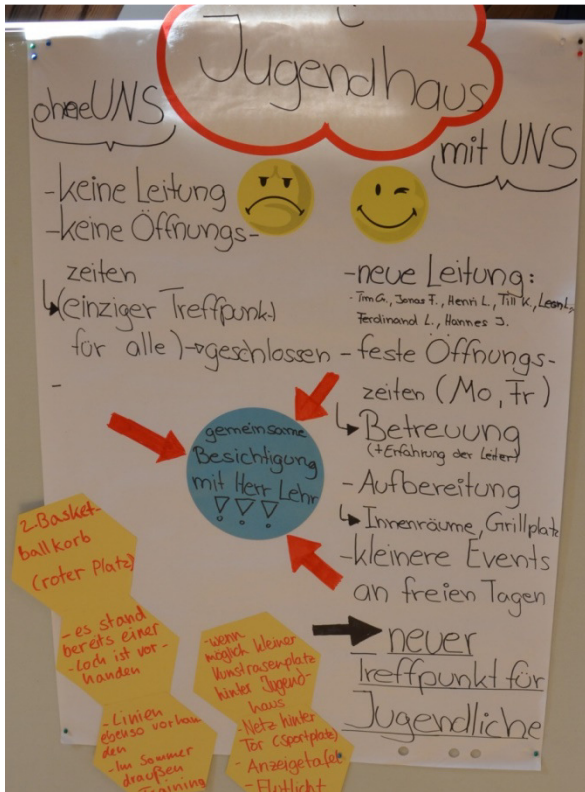 Jugendhaus
ohne UNS
- keine Leitung
- keine Öffnungs-
zeiten
↳ (einziger Treffpunkt
für alle) → geschlossen
-
mit UNS
- neue Leitung:
- Tim G., Jonas F., Henri L., Till K., Leon L.,
Ferdinand L., Hannes J.
- feste Öffnungs-
zeiten (Mo, Fr)
↳ Betreuung
(+Erfahrung der Leiter)
- Aufbereitung
↳ Innenräume, Grillplatz
- kleinere Events
an freien Tagen
→ neuer
Treffpunkt für
Jugendliche
gemeinsame
Besichtigung
mit Herr Lehr
!!!
2. Basket-
ballkorb
(roter Platz)
- es stand
bereits einer
- Loch ist vor-
handen
- Linien
ebenso vorhan
den
- Im Sommer
draußen
Training
- wenn
möglich kleiner
Kunstrasenplatz
hinter Jugend-
haus
- Netz hinter
Tor (Sportplatz)
- Anzeigetafel
- Flutlicht